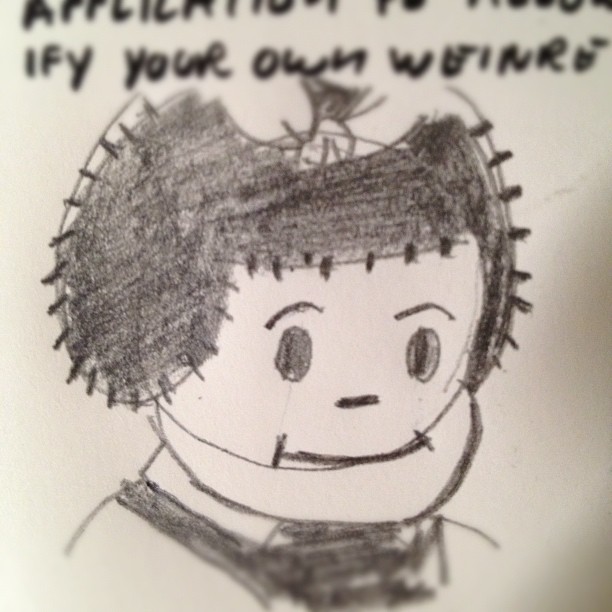 APPLICATION TO
IFY YOUR OWN WEINRE